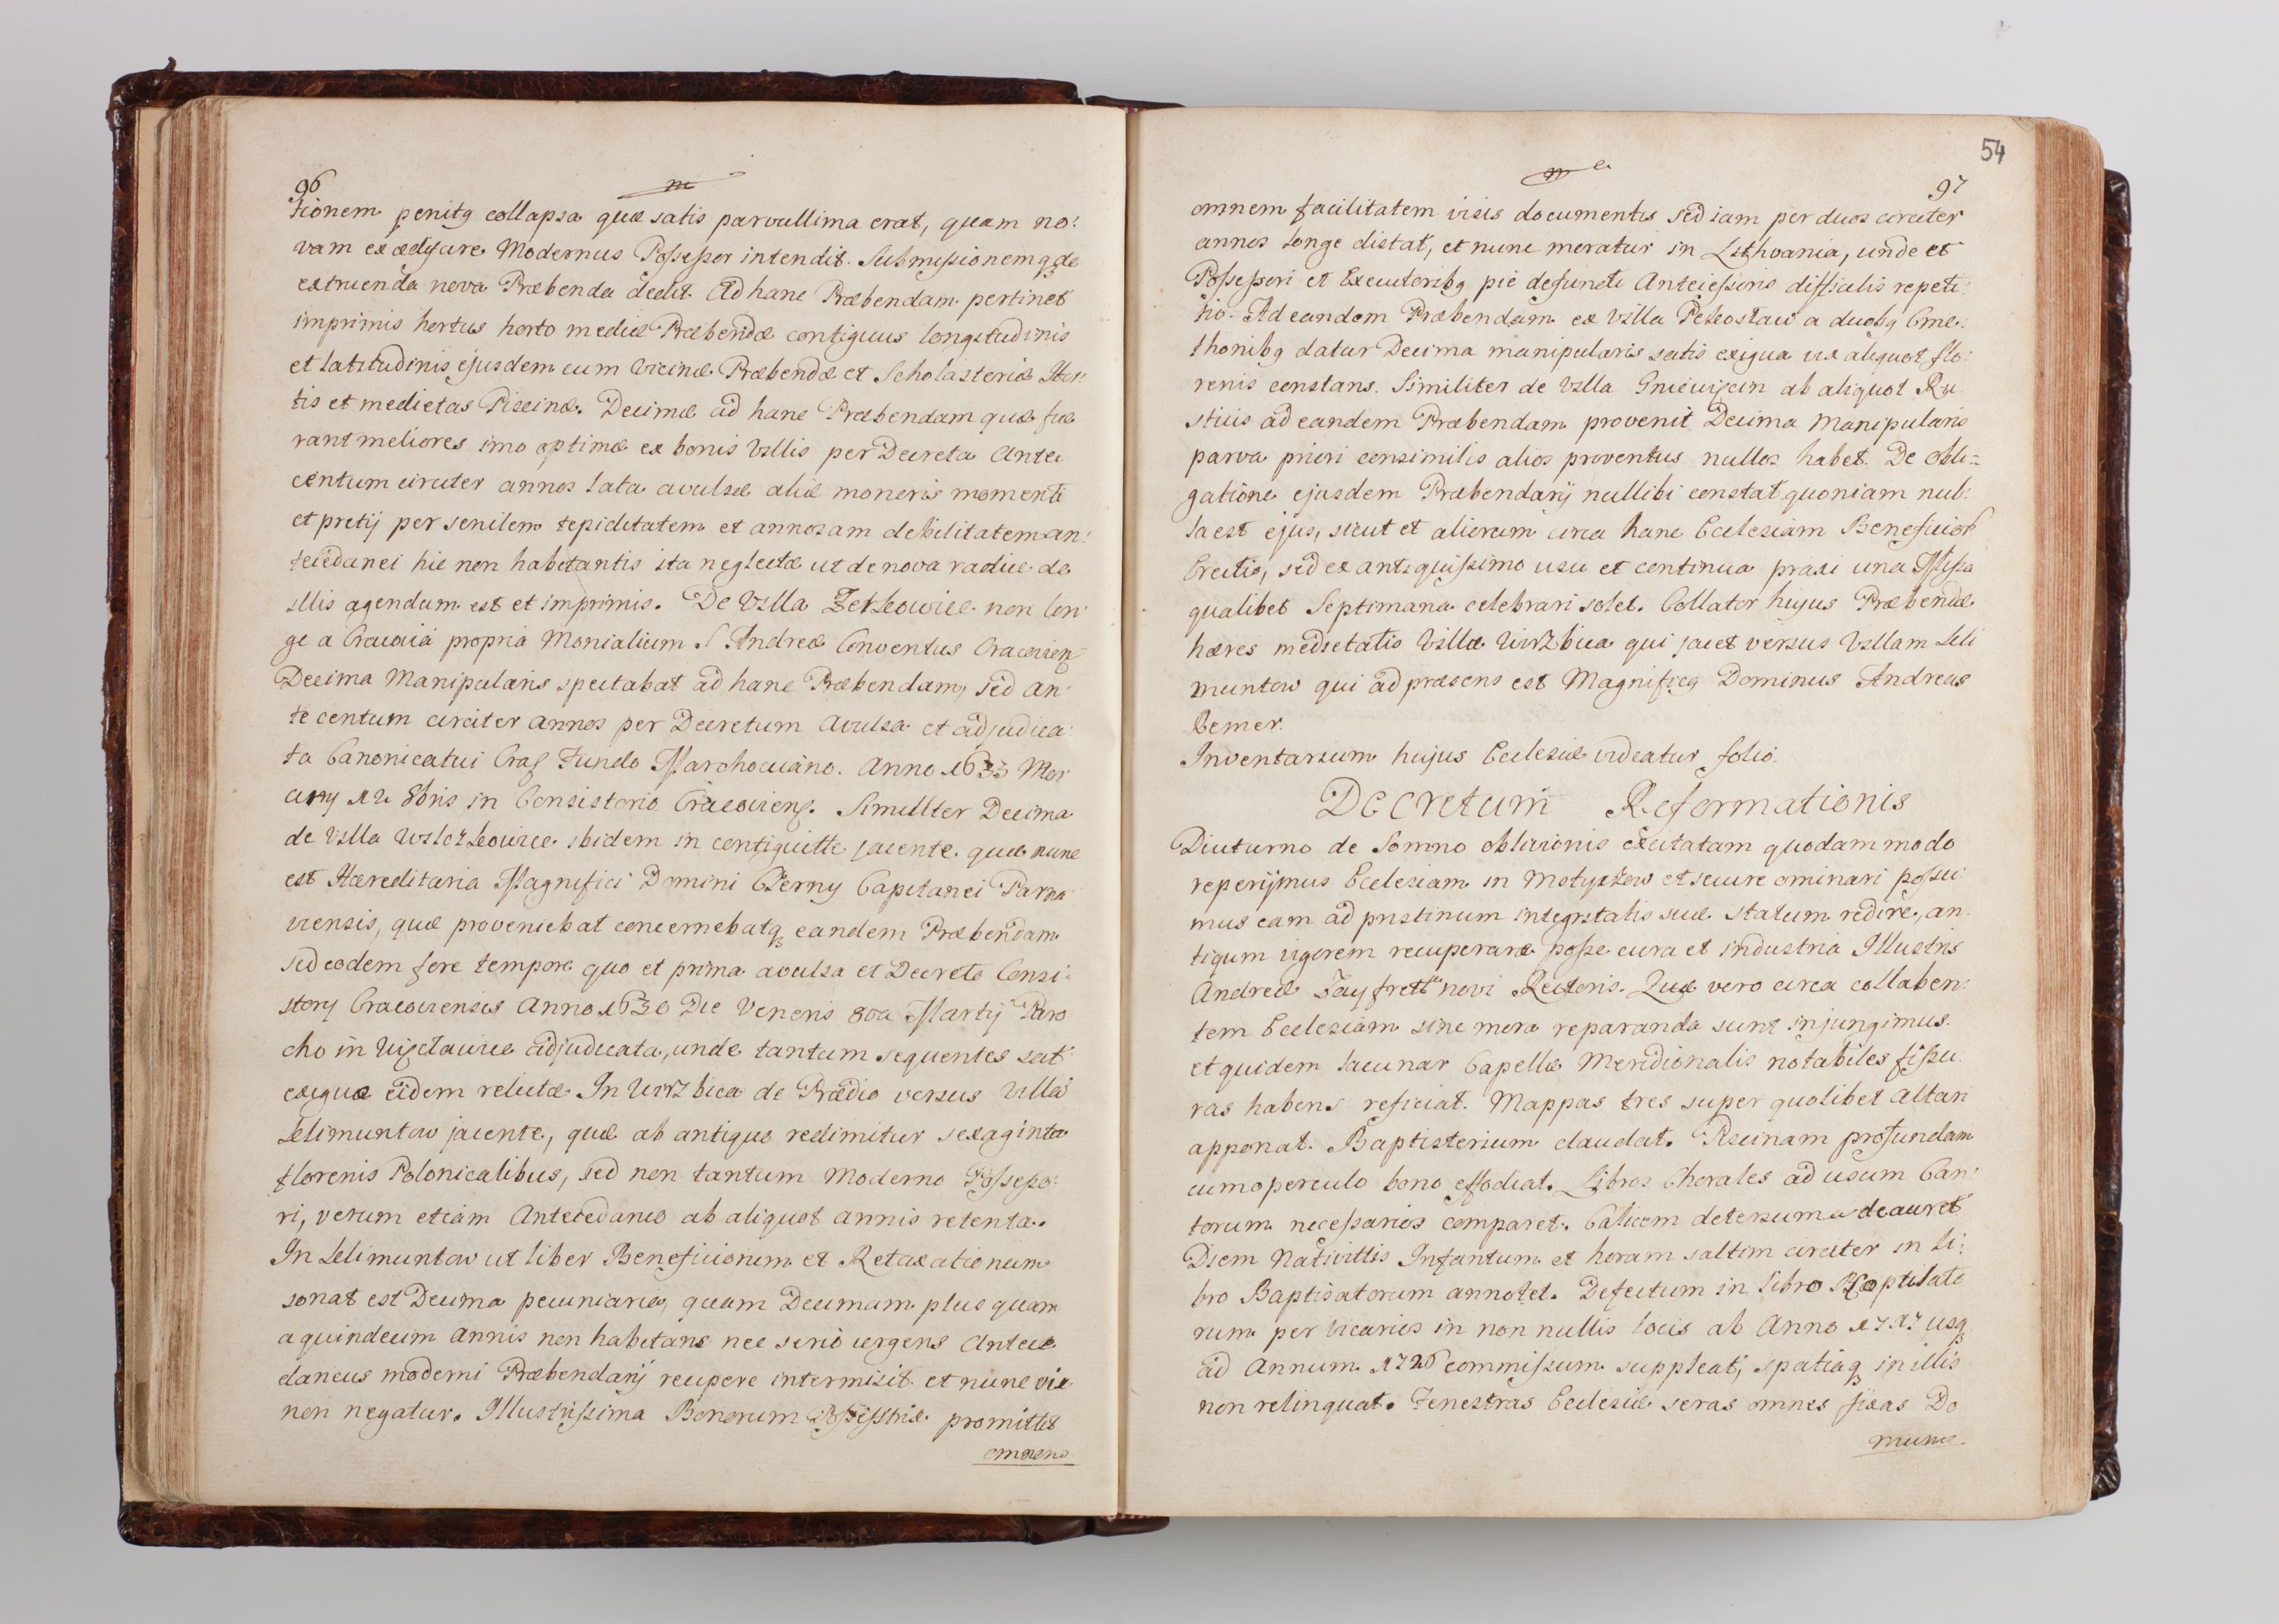 96
m
tionem penitq collapsa quæ satis parvullima erat, quam no:
vam exædifare Modernus Possessor intendit. Submissionemqq de
extruenda nova Præbenda dedit. Ad hanc Præbendam pertinet
imprimis hortus horto mediæ Præbendæ contiguus longitudinis
et latitudinis ejusdem cum vicinæ Præbendæ et Scholasteriæ Hor
tis et medietas Piscinæ. Decimæ ad hanc Præbendam quæ fue
rant meliores imo optimæ ex bonis Villis per Decreta Ante
centum circiter annos lata avulsæ aliæ moneris momenti
et pretij per senilem tepiditatem et annosam debilitatem an:
tecedanei hic non habitantis ita neglectæ ut de nova radice de
illis agendum est et imprimis. De Villa Zetkowice non lon
ge a Cracoviâ propriâ Monialium S Andreæ Conventus Cracovien
Decima Manipularis spectabat ad hanc Præbendam, sed an
te centum circiter annos per Decretum Avulsa et adjudica
ta Canonicatui Crac Fundo Marchoviano. Anno 1633 Mer
cury 12 8bris in Consistorio Cracoviens. Simillter Decima
de Villa Wilczkowice ibidem in contiguitte jacente quæ nunc
est Hæreditaria Magnifici Domini Czerny Capitanei Parna
viensis, quæ proveniebat concernebatq eandem Præbendam
sed eodem fere tempore quo et prima avulsa et Decreto Consi:
story Cracoviensis Anno 1630 Die Veneris 8va Martij Paro
cho in Więclawice adjudicata, unde tantum sequentes sat
exiguæ eidem relictæ. In Wirzbica de Prædio versus Villã
Lelimuntow jacente, quæ ab antiquo redimitur sexaginta
florenis Polonicalibus, sed non tantum Moderno Possesso:
ri, verum etiam Antecedaneo ab aliquot annis retenta.
In Lelimuntow ut liber Beneficiorum et Retaxationum
sonat est Decima pecuniaria, quam Decimam plus quam
a quindecim annis non habitans nec serio urgens Antece
daneus moderni Præbendarij recipere intermisit et nunc vix
non negatur. Illustrissima Bonorum promittit
omnem
54
m
97
omnem facilitatem visis documentis sed iam per duos circiter
annos longe distat, et nunc moratur in Lithvania, unde et
Possessori et Executoribq pie defuncti Antecessoris difficilis repeti
tio. Ad eandem Præbendam ex Villa Pełkosław a duobq Cme
thonibq datur Decima manipularis satis exigua vix aliquot flo:
renis constans. Similiter de Villa Gnieiwięcin ab aliquot Ru
sticis ad eandem Præbendam provenit Decima Manipularis
parva priori consimilis alios proventus nullos habet. De obli=
gatione ejusdem Præbendarij nullibi constat quoniam nul:
la est ejus, sicut et aliorum circa hanc Ecclesiam Beneficior
Erectio, sed ex antiquissimo usu et continua praxi una Missa
qualibet Septimana celebrari solet. Collator hujus Præbendæ
hæres medietatis Villæ Wirzbica qui jacet versus Villam Leli
muntow qui ad præsens est Magnificq Dominus Andreas
Bemer.
Inventarium hujus Ecclesiæ videatur folio.
Decretum Reformationis
Diuturno de Somno oblivionis excitatam quodammodo
reperijmus Ecclesiam in Motyczow et secure ominari possu:
mus eam ad pristinum integritatis suæ statum redire, an
tiqum vigorem recuperare posse cura et industria Illustris
Andreæ Jayfrett novi Rectoris. Quæ vero circa collaben:
tem Ecclesiam sine mora reparanda sunt injungimus
et quidem lacunar Capellæ Meridionalis notabiles fissu
ras habens reficiat. Mappas tres super quolibet altari
apponat. Baptisterium claudat. Piscinam profundam
cum operculo bono effodiat. Libros Chorales ad usum Can:
torum necessarios comparet. Calicem detersum deauret
Diem Nativittis Infantum et horam saltim circiter in li:
bro Baptisatorum annotet. Defectum in libro Baptisato
rum per Vicarios in non nullis locis ab Anno 1717 usq
ad Annum 1726 commissum suppleat, spatiaq in illis
non relinquat. Fenestras Ecclesiæ seras omnes fixas Do
mus